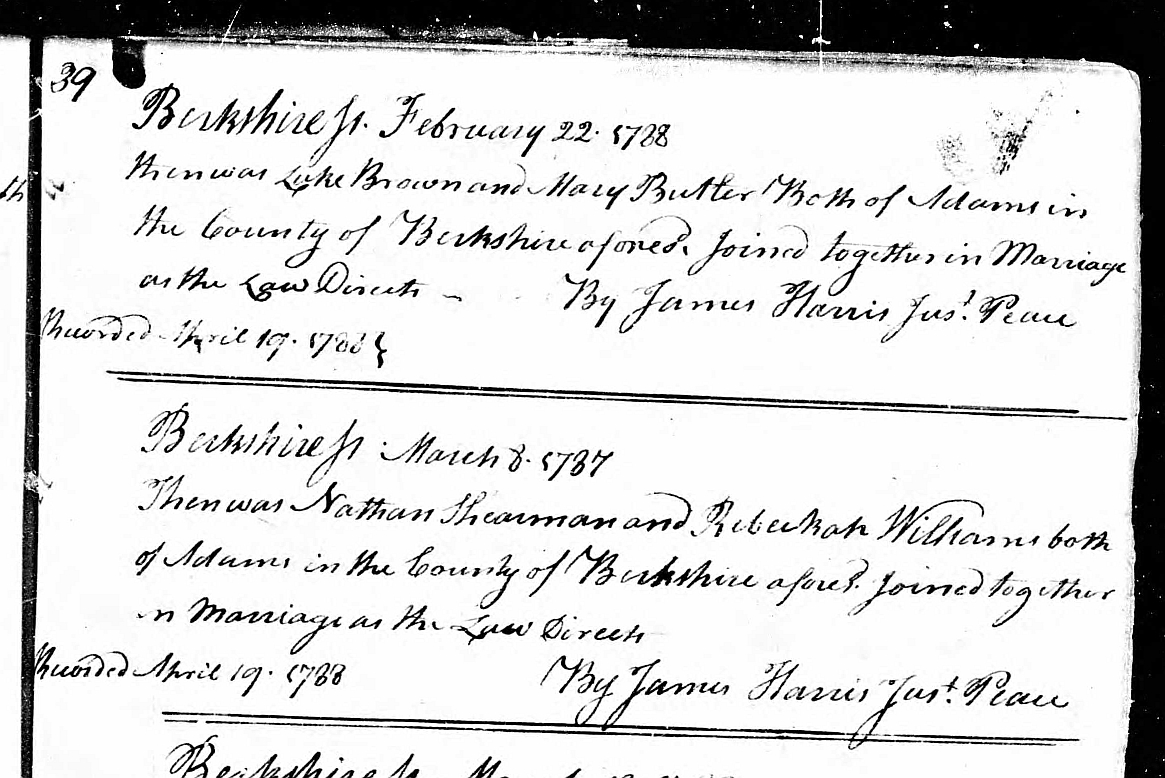 39
Berkshire ſs. February 22. 1788
then was Luke Brown and Mary Butler Both of Adams in
the County of Berkshire aforesd. Joined together in Marriage
as the Law Directs – By James Harris Just. Peace
Recorded April 19. 1788 }
Berkshire ſs March 8. 1787
Then was Nathan Shearman and Rebeckah Williams both
of Adams in the County of Berkshire afored. Joined together
in Marriage as the Law Directs
Recorded April 19. 1788 By James Harris Just. Peace
Berkshire ſs